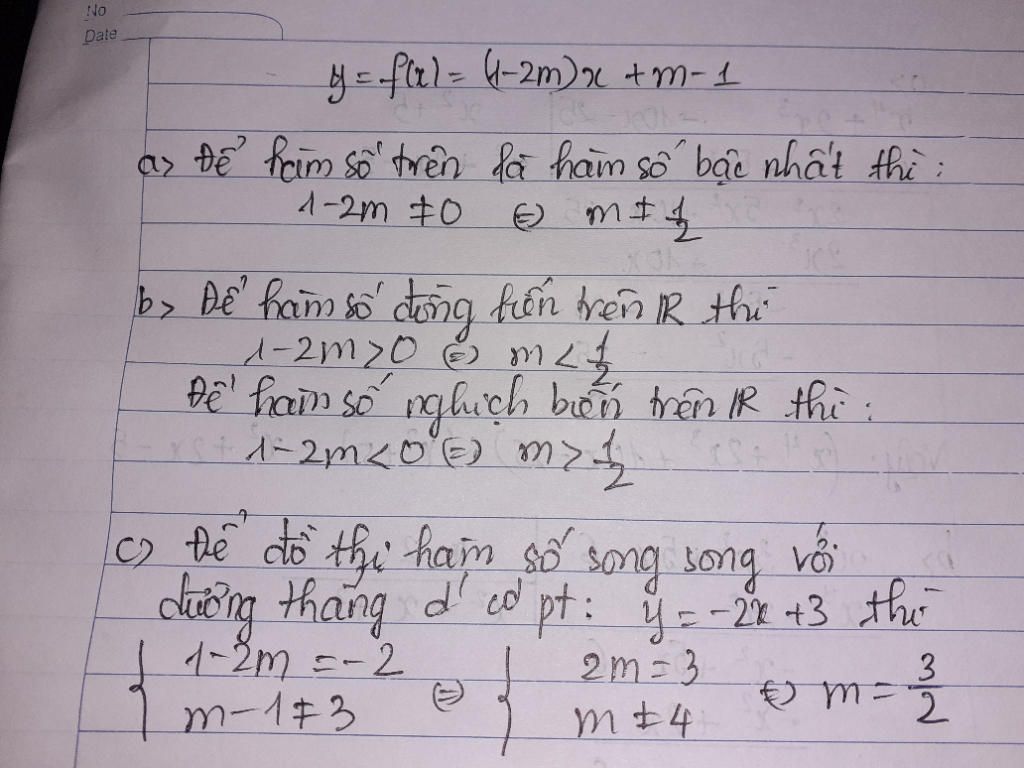 No
Date
y = f(x) = (1-2m)x + m - 1
a> Để hàm số trên là hàm số bậc nhất thì:
1-2m ≠ 0 ⇔ m ≠ 1/2
b> Để hàm số đồng biến trên ℝ thì
1-2m > 0 ⇔ m < 1/2
Để hàm số nghịch biến trên ℝ thì:
1-2m < 0 ⇔ m > 1/2
c> Để đồ thị hàm số song song với
đường thẳng d' có pt: y = -2x + 3 thì
{ 1-2m = -2 ⇔ { 2m = 3 ⇔ m = 3/2
m - 1 ≠ 3 m ≠ 4